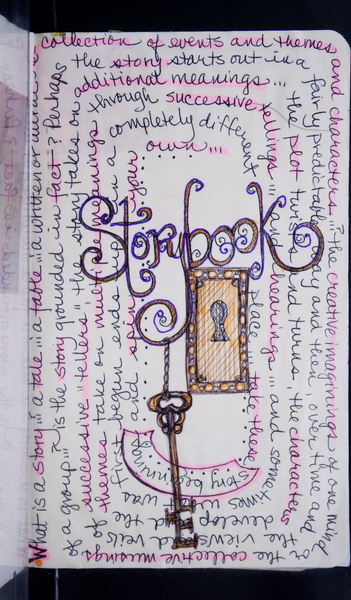 What is a story... a tale... a fable... a written or
collection of events and themes
and characters...? the creative imaginings of one mind
or the collective musings
of a group...? is the story grounded in fact? Perhaps
the story starts out in a
fairly predictable way and then, over time and
the views and veils of
successive "tellers" the story takes on
additional meanings...
the plot twists and turns, the characters
develop and the
themes take on multiple meanings
through successive tellings
... and hearings... and sometimes what was
first begun ends up in a
completely different
place... take these
story beginnings
and spin your
own...
Storybook